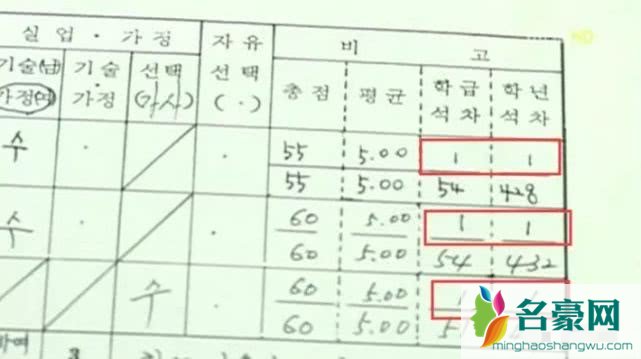 실업 · 가정 자유 비 고
기술(남) 기술 선택 선택 총점 평균 학급 학년
가정(여) 가정 (가사) ( · ) 석차 석차
수 · · 55 5.00 1 1
55 5.00 54 428
수 · · 60 5.00 1 1
60 5.00 54 432
수 · 60 5.00 1
60 5.00 5
하여
名豪网
minghaoshangwu.com